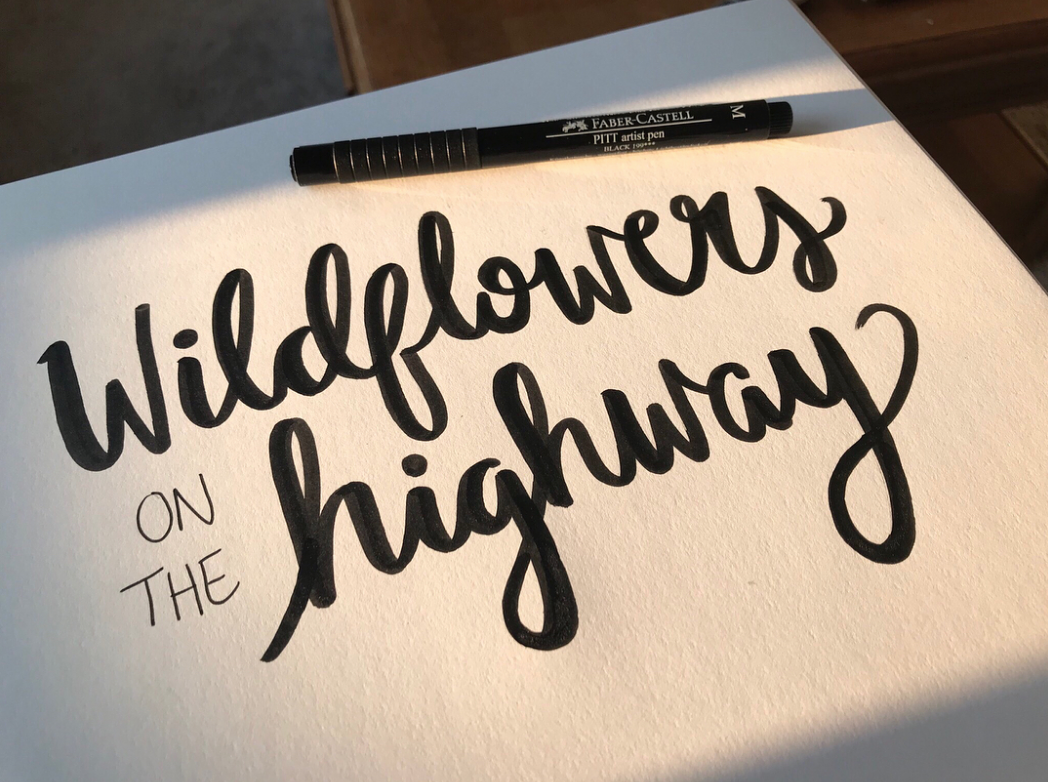 FABER-CASTELL
PITT artist pen
BLACK 199***
M
Wildflowers
ON
THE
highway